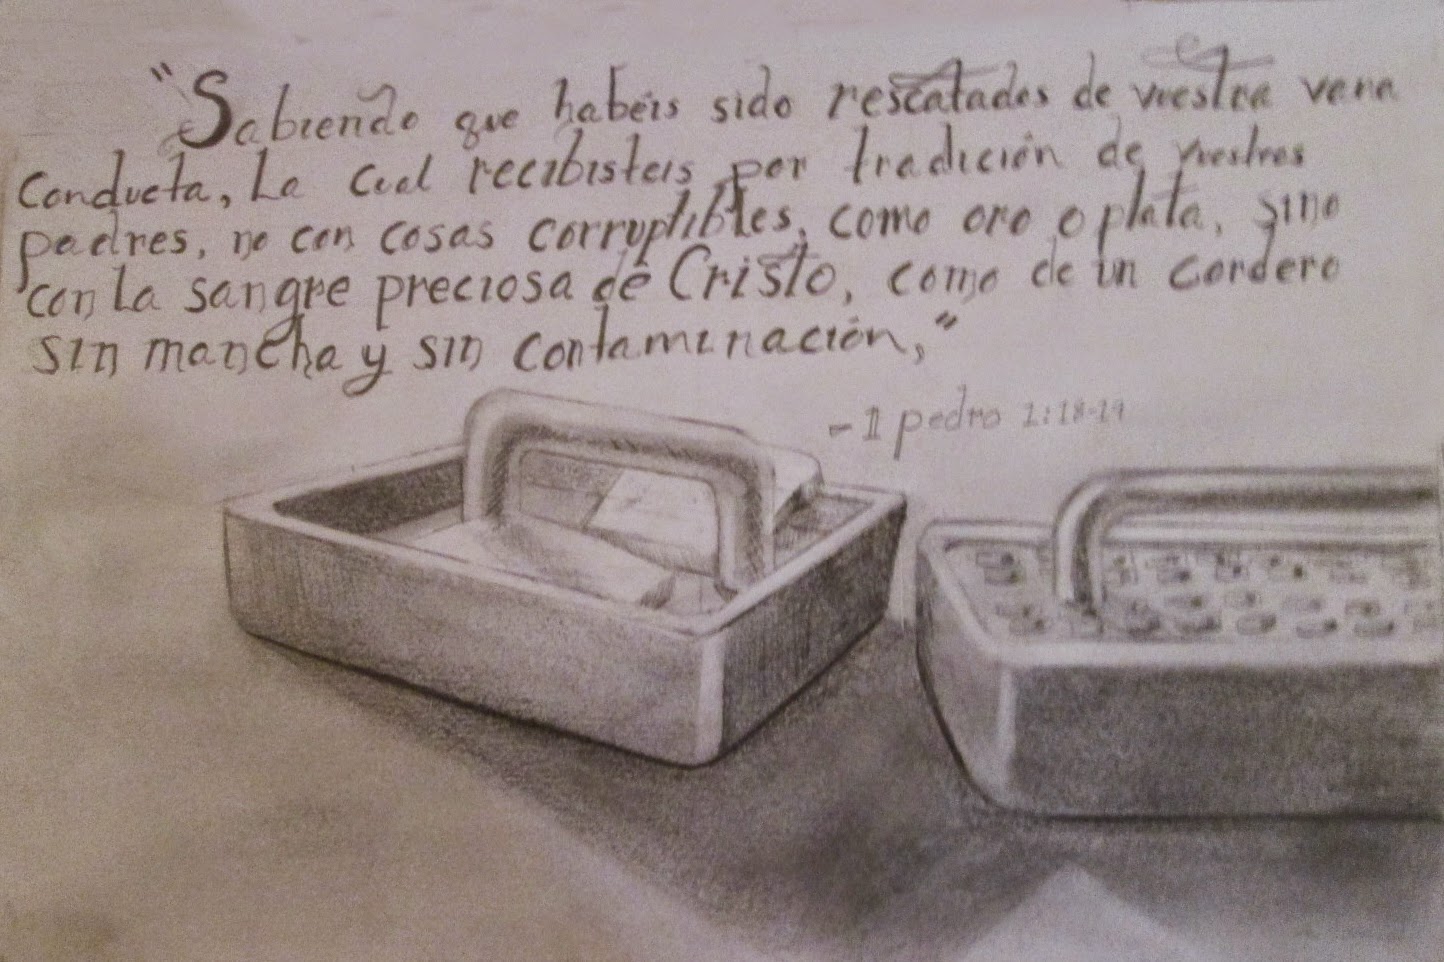 "Sabiendo que habéis sido rescatados de vuestra vana
conducta, La cual recibisteis por tradición de vuestros
padres, no con cosas corruptibles, como oro o plata, sino
con La sangre preciosa de Cristo, como de un cordero
sin mancha y sin contaminación,"
- 1 pedro 1:18-19